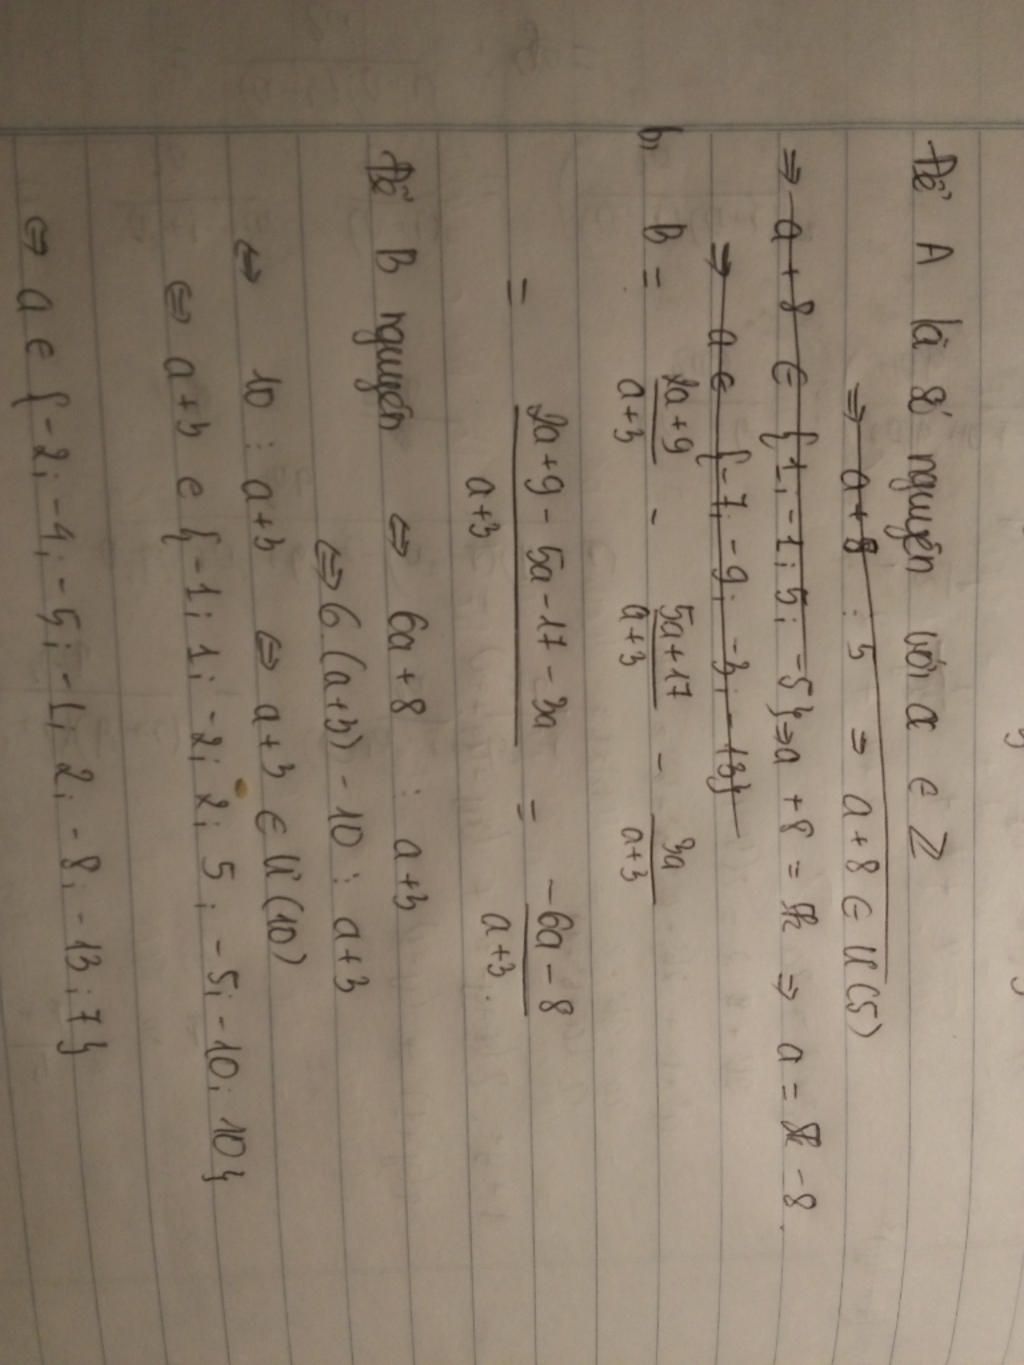 Để A là số nguyên với x ∈ Z
⇒ a + 8 ⋮ 5 ⇒ a + 8 ∈ Ư(5)
⇒ a + 8 ∈ {1; -1; 5; -5} ⇒ a + 8 = 5k ⇒ a = 5k - 8.
⇒ a ∈ {-7; -9; -3; -13}
b, B = (2a+9)/(a+3) - (5a+17)/(a+3) - 3a/(a+3)
= (2a+9 - 5a - 17 - 3a)/(a+3) = (-6a - 8)/(a+3).
Để B nguyên ⇔ 6a + 8 ⋮ a+3
⇔ 6(a+3) - 10 ⋮ a+3
⇔ 10 ⋮ a+3 ⇔ a+3 ∈ Ư(10)
⇔ a+3 ∈ {-1; 1; -2; 2; 5; -5; -10; 10}
⇔ a ∈ {-2; -4; -5; -1; 2; -8; -13; 7}